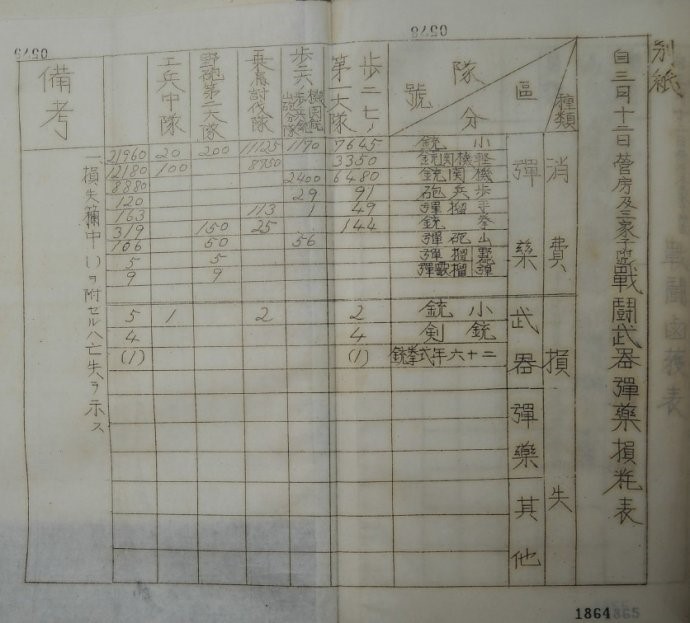 別紙
自三月十二日營房及三家子附近戰鬪武器彈藥損耗表
種類
區分
隊號
歩二七ノ第一大隊
乘馬討伐隊
野砲第二大隊
工兵中隊
備考
消費
彈藥
小銃 7645 1190 11125 200 20 21960
輕機關銃 3350 8950 100 12180
機關銃 6480 2400 8880
歩兵砲 91 29 120
手榴彈 49 1 113 163
拳銃 144 25 150 319
山砲彈 56 50 106
榴彈 5 5
榴霰彈 9 9
損失
武器
小銃 2 2 1 5
銃劍 4 4
二十六年式拳銃 (1) (1)
彈藥
其他
一、損失欄中( )ヲ附セルハ亡失ヲ示ス
0578
0579
1864
365